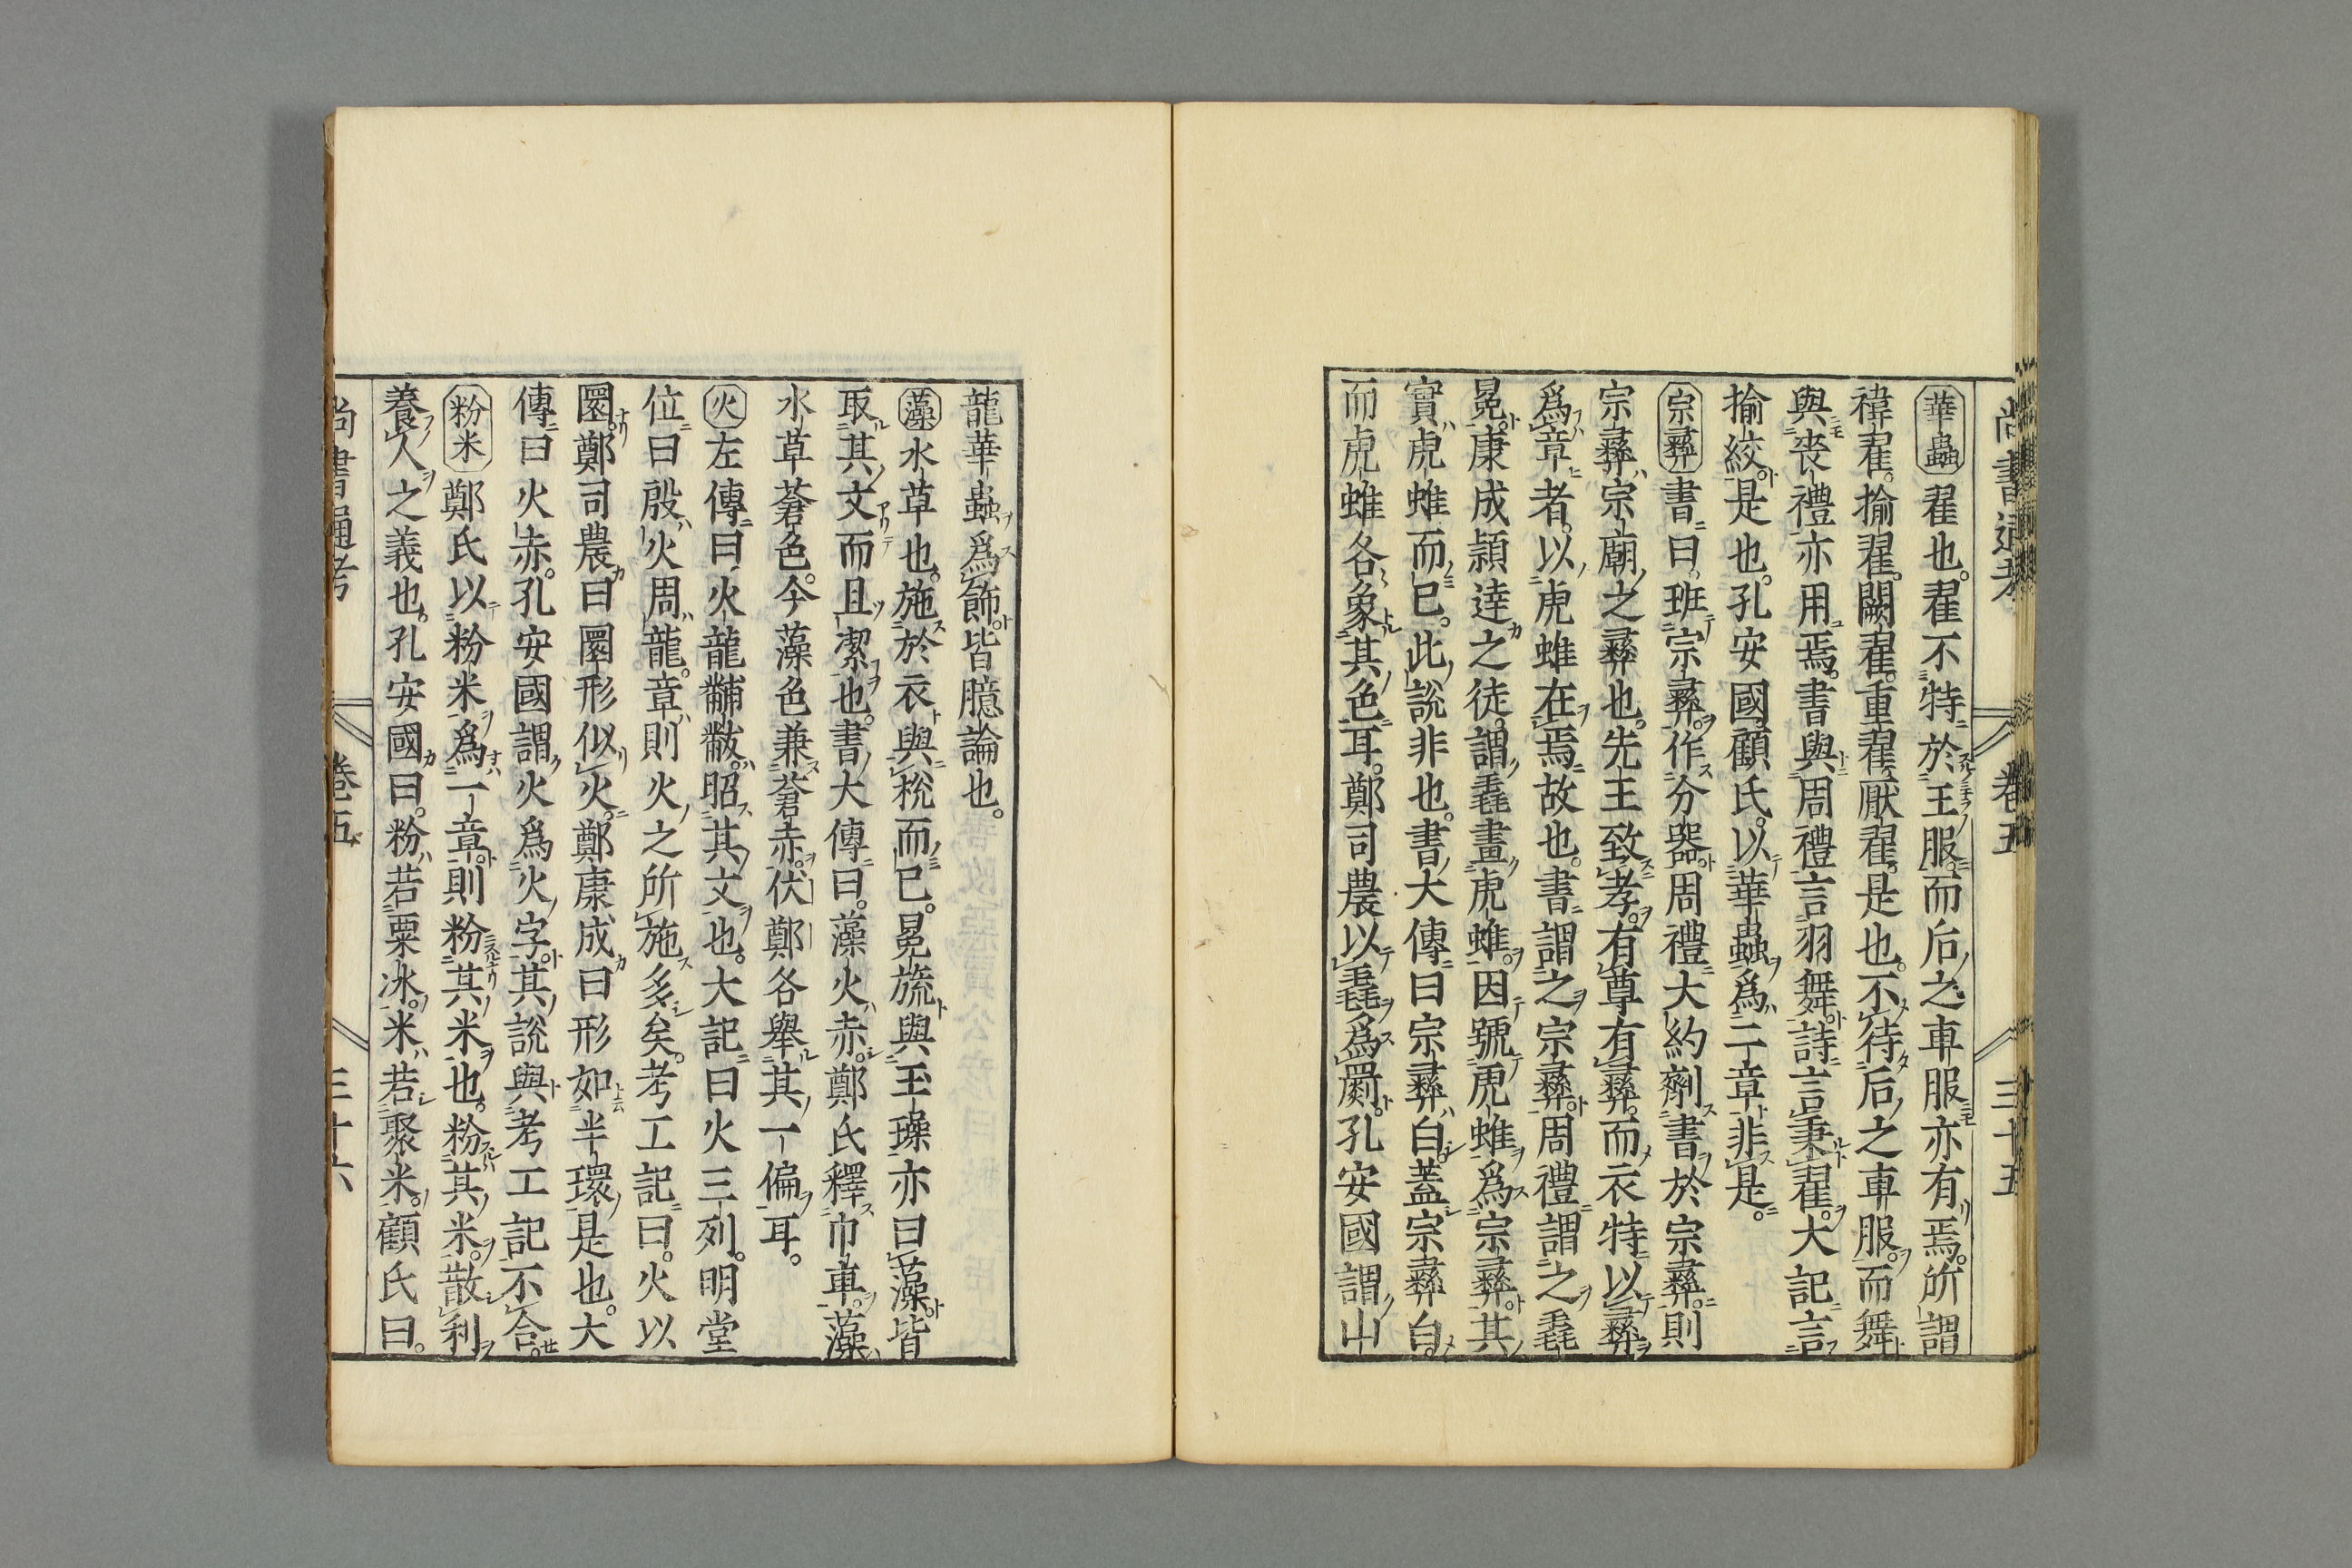 尚書通考 卷五 三十五
華蟲翟也。翟不特於王服。而后之車服亦有焉。所謂
褘翟。揄翟。闕翟。重翟。厭翟。是也。不待后之車服。而舞
與喪禮亦用焉。書與周禮言羽舞。詩言秉翟。大記言
揄絞。是也。孔安國。顧氏。以華蟲爲二章非是。
宗彝書曰班宗彝。作分器。周禮大約劑書於宗彝。則
宗彝宗廟之彝也。先王致孝。有尊有彝。而衣特以彝
爲章者。以虎蜼在焉故也。書謂之宗彝。周禮謂之毳
冕。康成頴達之徒。謂毳畫虎蜼。因號虎蜼爲宗彝。其
實虎蜼而已。此說非也。書大傳曰宗彝白。蓋宗彝白。
而虎蜼各象其色耳。鄭司農以毳爲罽。孔安國謂山
龍華蟲爲飾。皆臆論也。
藻水草也。施於衣與梲而已。冕旒與玉璪亦曰藻。皆
取其文而且潔也。書大傳曰。藻火赤。鄭氏釋巾車。藻
水草蒼色。今藻色兼蒼赤。伏鄭各舉其一偏耳。
火左傳曰火龍黼黻。昭其文也。大記曰火三列。明堂
位曰殷火周龍。章則火之所施多矣。考工記曰。火以
圜。鄭司農曰圜形似火。鄭康成曰形如半環是也。大
傳曰火赤。孔安國謂火爲火字。其說與考工記不合。
粉米鄭氏以粉米爲一章。則粉其米也。粉其米。散利
養人之義也。孔安國曰。粉若粟冰。米若聚米。顧氏曰。
尚書通考 卷五 三十六